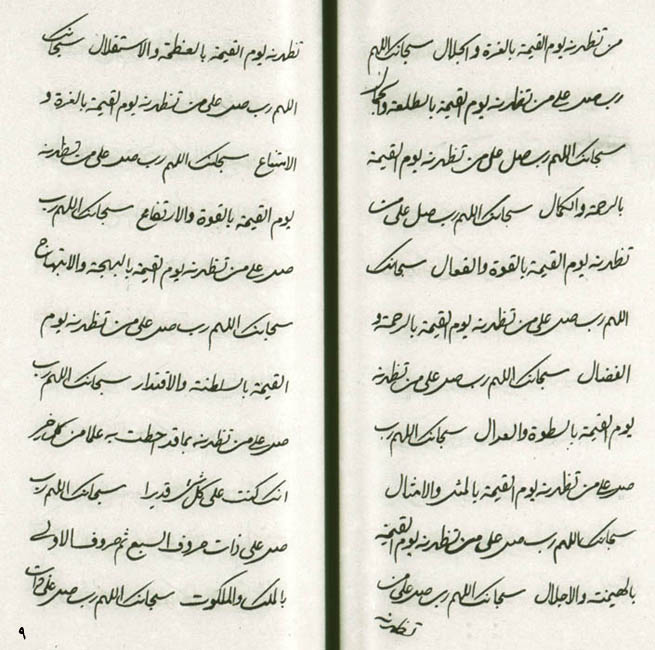 من تظهرنه يوم القيمة بالعزة والجلال سبحانك اللهم
رب صل على من تظهرنه يوم القيمة بالطلعة والجمال
سبحانك اللهم رب صل على من تظهرنه يوم القيمة
بالرحمة والكمال سبحانك اللهم رب صل على من
تظهرنه يوم القيمة بالقوة والفعال سبحانك
اللهم رب صل على من تظهرنه يوم القيمة بالرحمة و
الفضال سبحانك اللهم رب صل على من تظهرنه
يوم القيمة بالسطوة والعدال سبحانك اللهم رب
صل على من تظهرنه يوم القيمة بالمثل والامثال
سبحانك اللهم رب صل على من تظهرنه يوم القيمة
بالهيمنة والاجلال سبحانك اللهم رب صل على من
تظهرنه
تظهرنه يوم القيمة بالعظمة والاستقلال سبحانك
اللهم رب صل على من تظهرنه يوم القيمة بالعزة و
الامتناع سبحانك اللهم رب صل على من تظهرنه
يوم القيمة بالقوة والارتفاع سبحانك اللهم رب
صل على من تظهرنه يوم القيمة بالبهجة والابتهاج
سبحانك اللهم رب صل على من تظهرنه يوم
القيمة بالسلطنة والاقتدار سبحانك اللهم رب
صل على من تظهرنه بما قد احطت به علما من كل خير
انك كنت على كل شئ قديرا سبحانك اللهم رب
صل على ذات حروف السبع ثم حروف الاولى
بالملك والملكوت سبحانك اللهم رب صل على ذات
٩